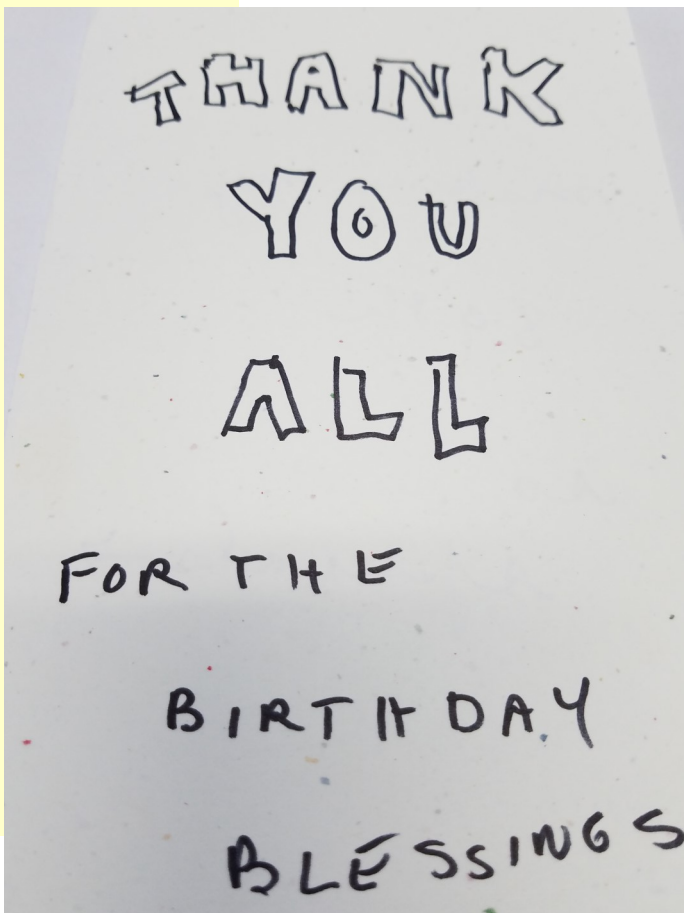 THANK
YOU
ALL
FOR THE
BIRTHDAY
BLESSINGS